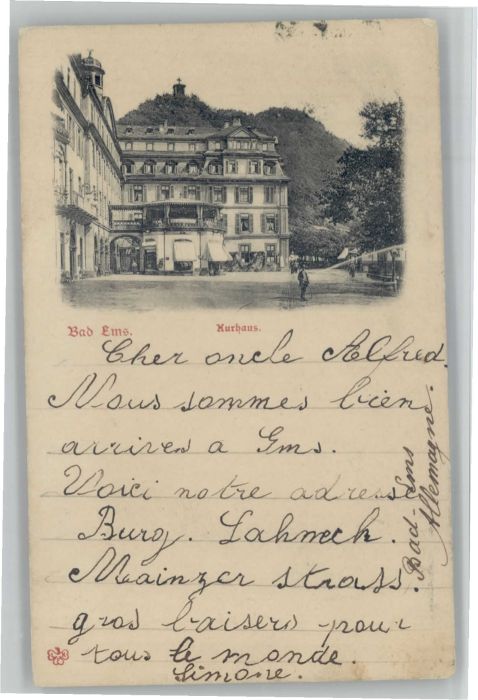 Bad Ems.
Kurhaus.
Cher oncle Alfred.
Nous sommes bien
arrives a Ems.
Voici notre adresse
Burg. Lahneck.
Mainzer strass.
gros baisers pour
tous le monde.
Simone.
Bad-Ems
Allemagne.